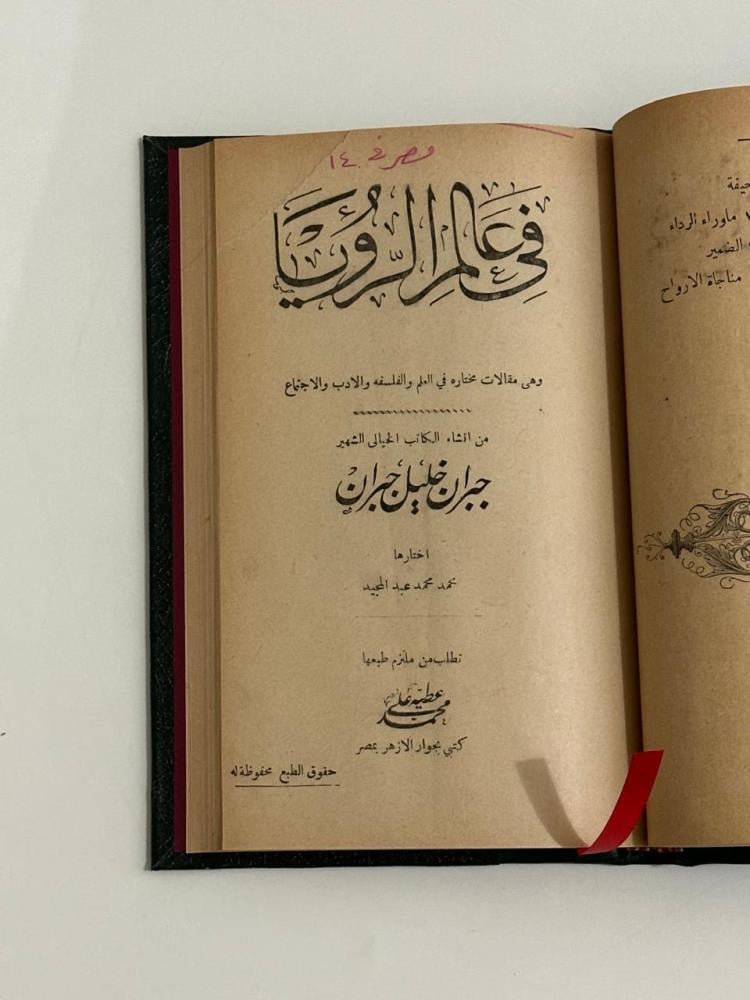 مصر في ١٤
في عالم الرؤيا
وهى مقالات مختاره في العلم والفلسفه والادب والاجتماع
من انشاء الكاتب الخيالى الشهير
جبران خليل جبران
اختارها
محمد محمد عبد المجيد
تطلب من ملتزم طبعها
محمد عطية علي
كتبي بجوار الازهر بمصر
حقوق الطبع محفوظة له
ماوراء الرداء
الضمير
مناجاة الارواح